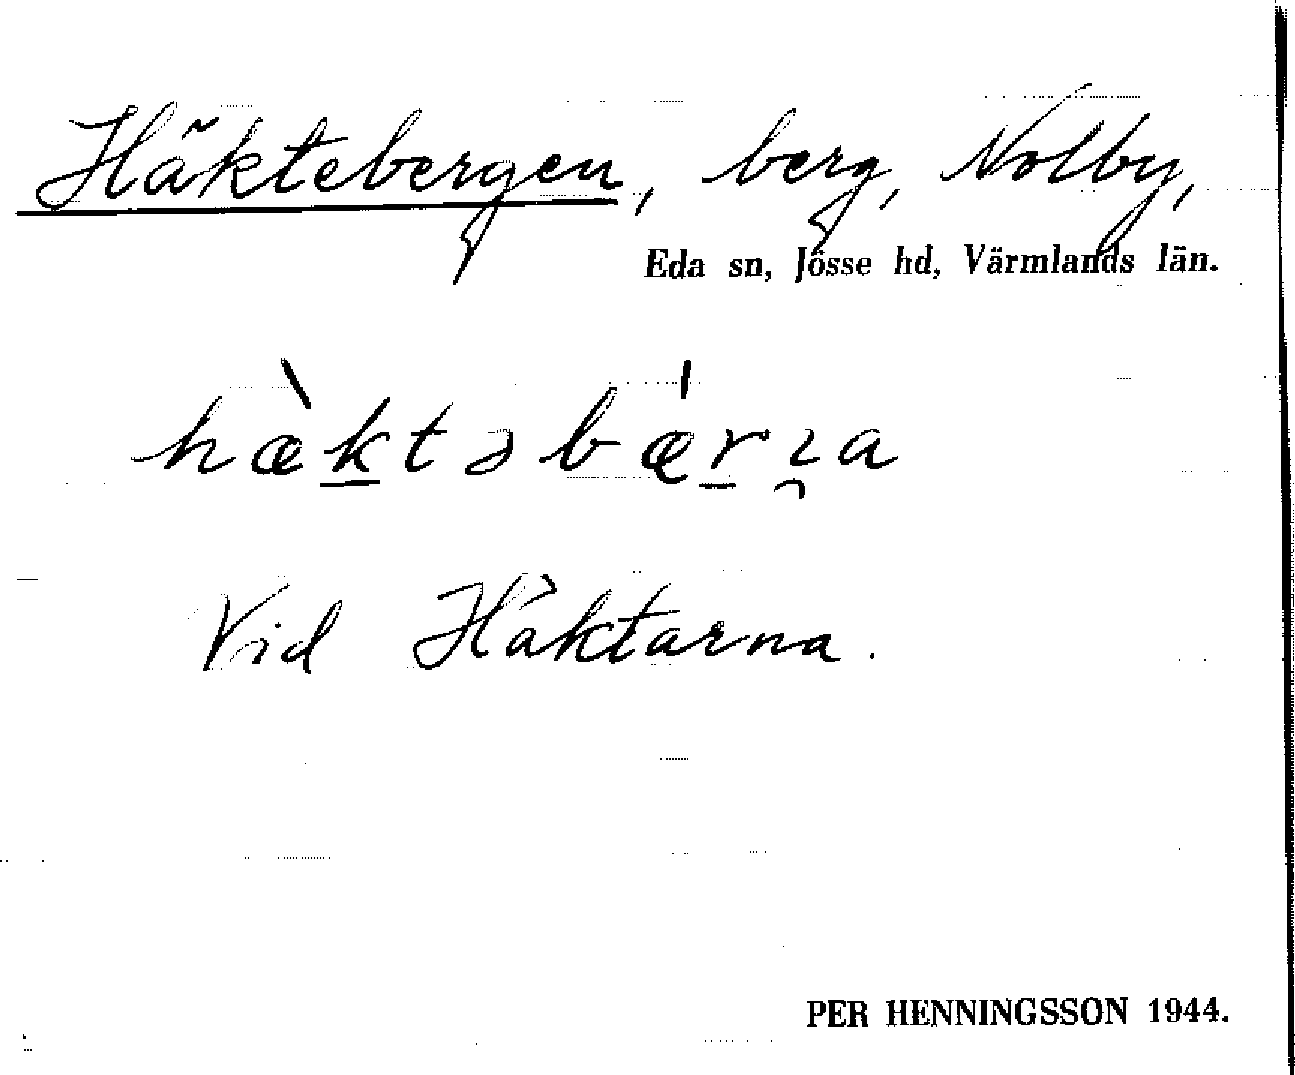 Häktebergen, berg, Nolby,
Eda sn, Jösse hd, Värmlands län.
hæ̀ktəbæ̍rɿa
Vid Häktarna.
PER HENNINGSSON 1944.